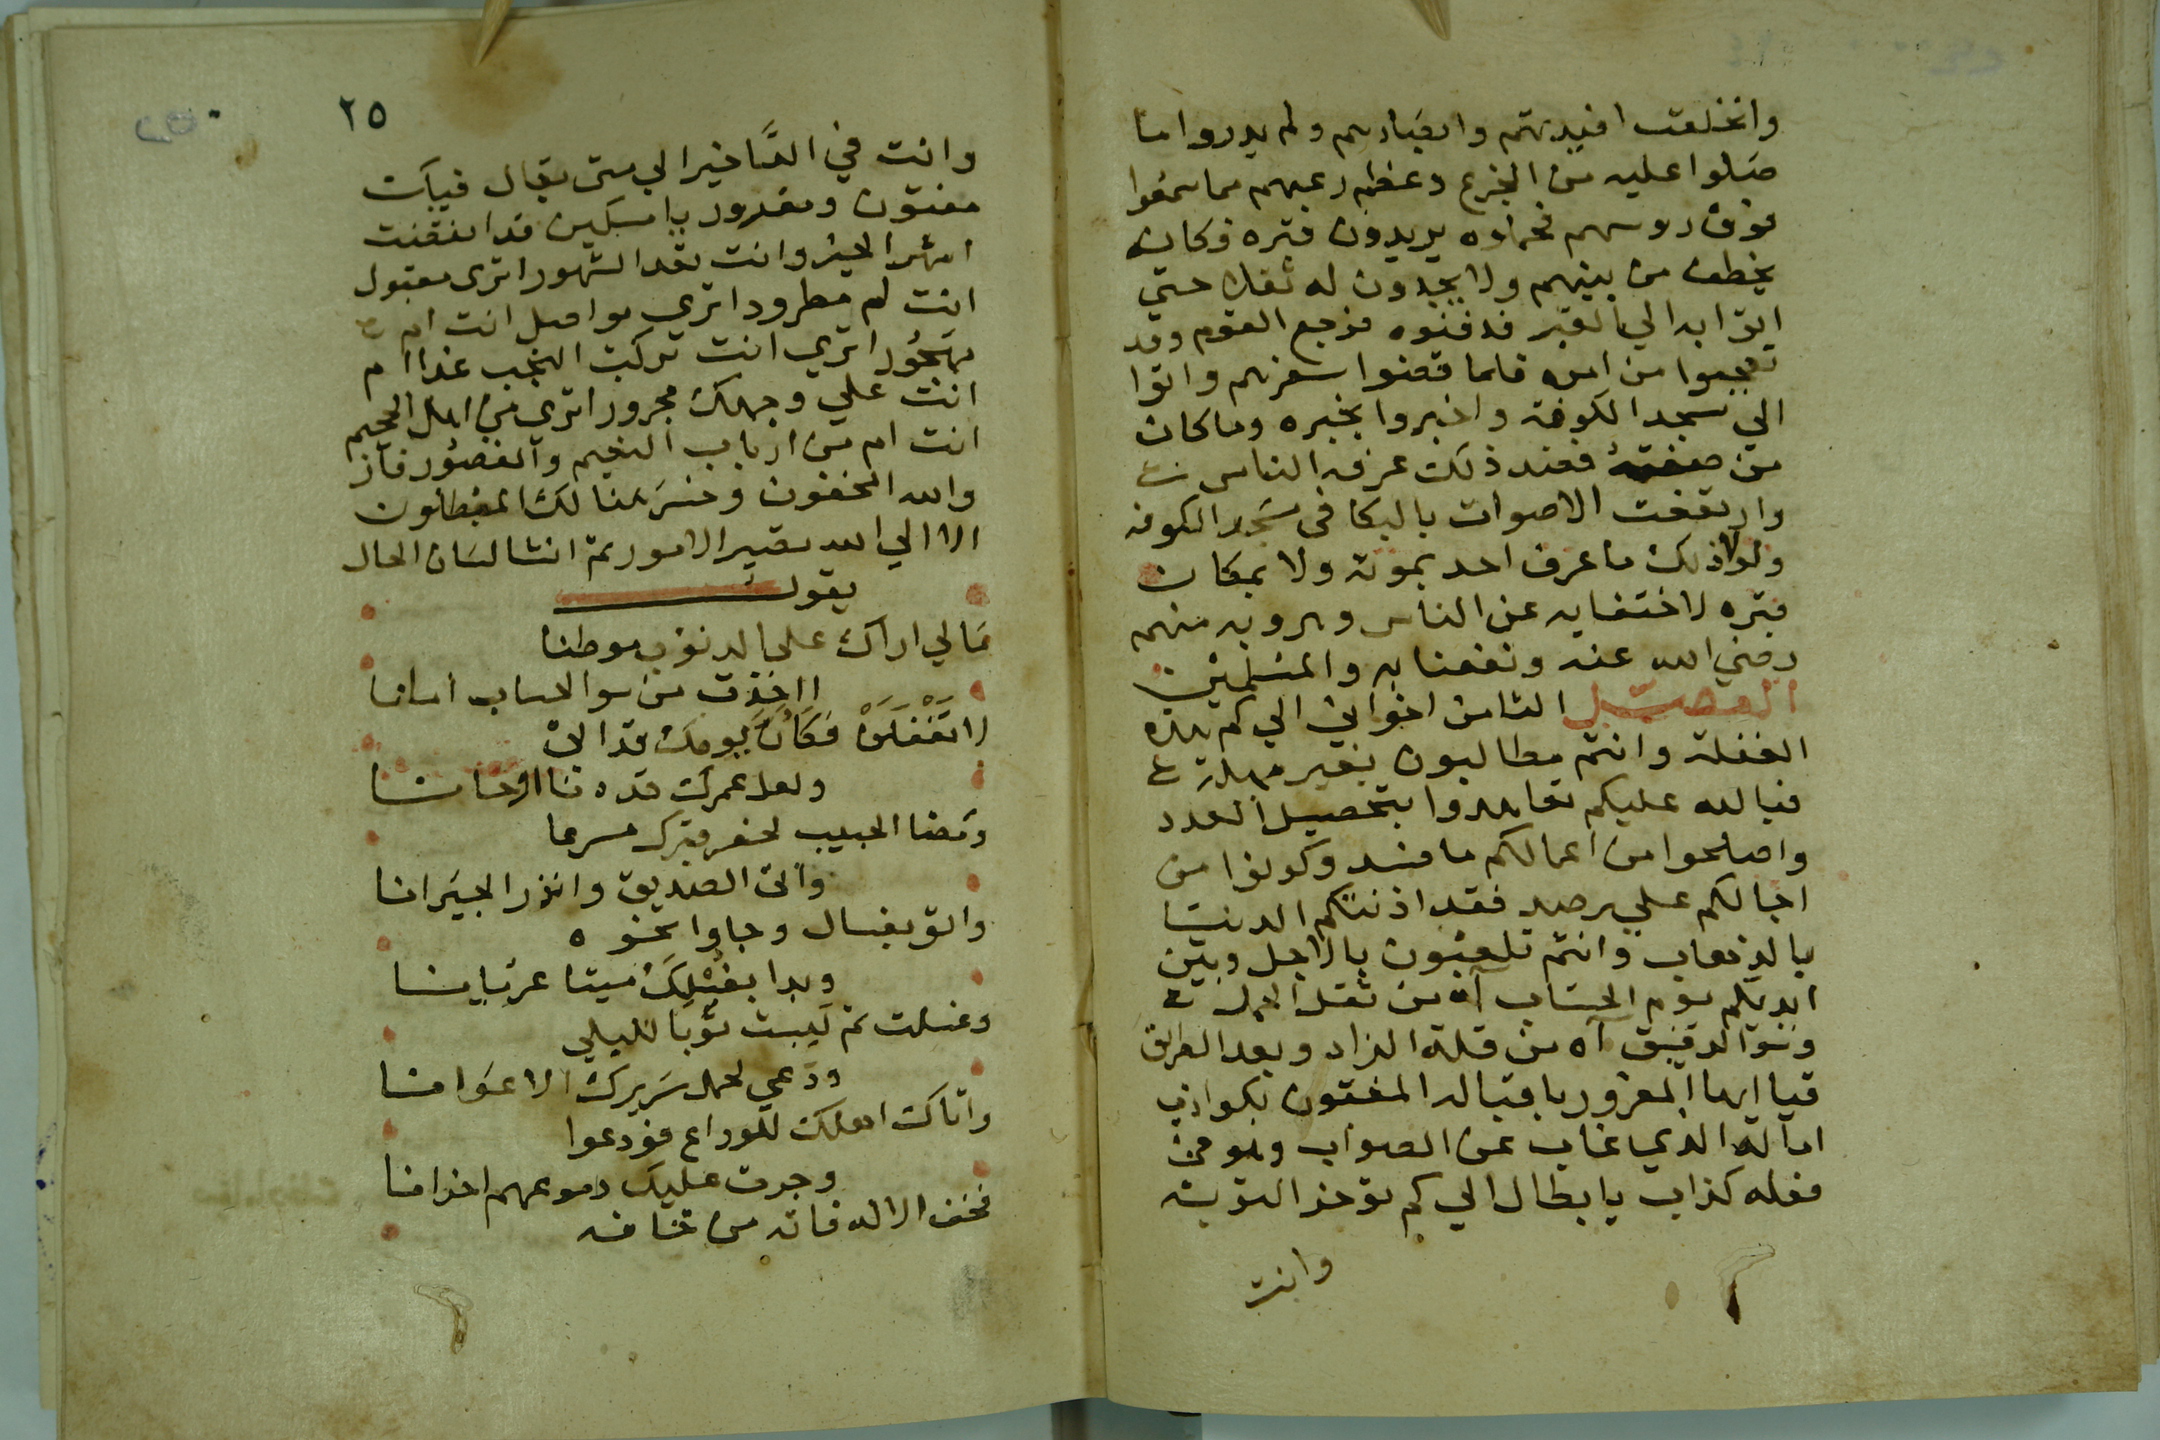 وانخلعت افيدتهم وابصارهم ولم يدروا ما
صلوا عليه من الجزع وعظم رعبهم مما سمعوا
فوق روسهم فحملوه يريدون قبره وكان
يخطف من بينهم ولا يجدون له ثقلا حتي
اتوا به الي القبر فدفنوه فرجع القوم وقد
تعجبوا من امره فلما قضوا سفرهم واتوا
الي مسجد الكوفة واخبروا بخبره وما كان
من صفته فعند ذلك عرفه الناس
وارتفعت الاصوات بالبكا في مسجد الكوفه
ولولا ذلك ما عرف احد بموته ولا بمكان
قبره لاختفايه عن الناس وهروبه منهم
رضي الله عنه ونفعنا به والمسلمين
الفصل الثامن اخواني الي كم هذه
الغفلة وانتم مطالبون بغير مهلة
فبالله عليكم تعاهدوا بتحصيل العدد
واصلحوا من اعمالكم ما فسد وكونوا من
اجالكم علي رصد فقد اذنتكم الدنيا
بالذهاب وانتم تلعبون بالاجل وبين
ايديكم يوم الحساب آه من ثقل الحمل
آه من قلة الزاد وبعد الطريق
فيا ايها المغرور باقباله المفتون بكواذب
اماله الذي غاب عن الصواب وهو في
فعله كذاب يا بطال الي كم توخر التوبة
وانت
٢٥
وانت في التاخير الي متى يقال فيك
مفتون ومغرور يا مسكين قد انقضت
اشهر الخير وانت تعد الشهور اترى مقبول
انت ام مطرود اتري مواصل انت ام
مهجور اتري انت تركب النجب غدا ام
انت علي وجهك مجرور اتري من اهل الجحيم
انت ام من ارباب النعيم والقصور فاز
والله المخفون وخسر هنالك المبطلون
الا الي الله تصير الامور ثم انشا لسان الحال
يقول
مالي اراك علي الذنوب موطنا
ااخذت من سو الحساب امانا
لا تغفلن فكأن يومك قد اتي
ولعل عمرك قد دنا او حانا
ومضا الحبيب لحفر قبرك مسرعا
واتى الصديق وانذر الجيرانا
واتو بغسال وجاوا نحوه
وبدا بغسلك ميتا عريانا
وغسلت ثم لبست ثوبا للبلي
ودعي لحمل سريرك الاعوانا
واتاك اهلك للوداع فودعوا
وجرت عليك دموعهم احزانا
فخف الاله فانه من خافه